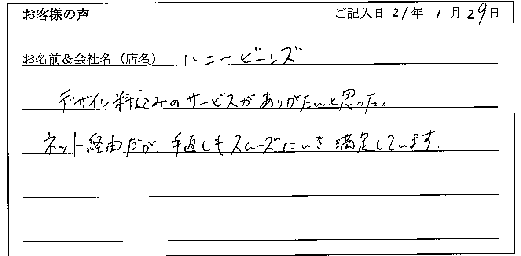 お客様の声
ご記入日 21年 1月 29日
お名前&会社名（店名） ハニービーンズ
デザイン料込みのサービスがありがたいと思った。
ネット経由だが、手直しもスムーズにいき満足しています。